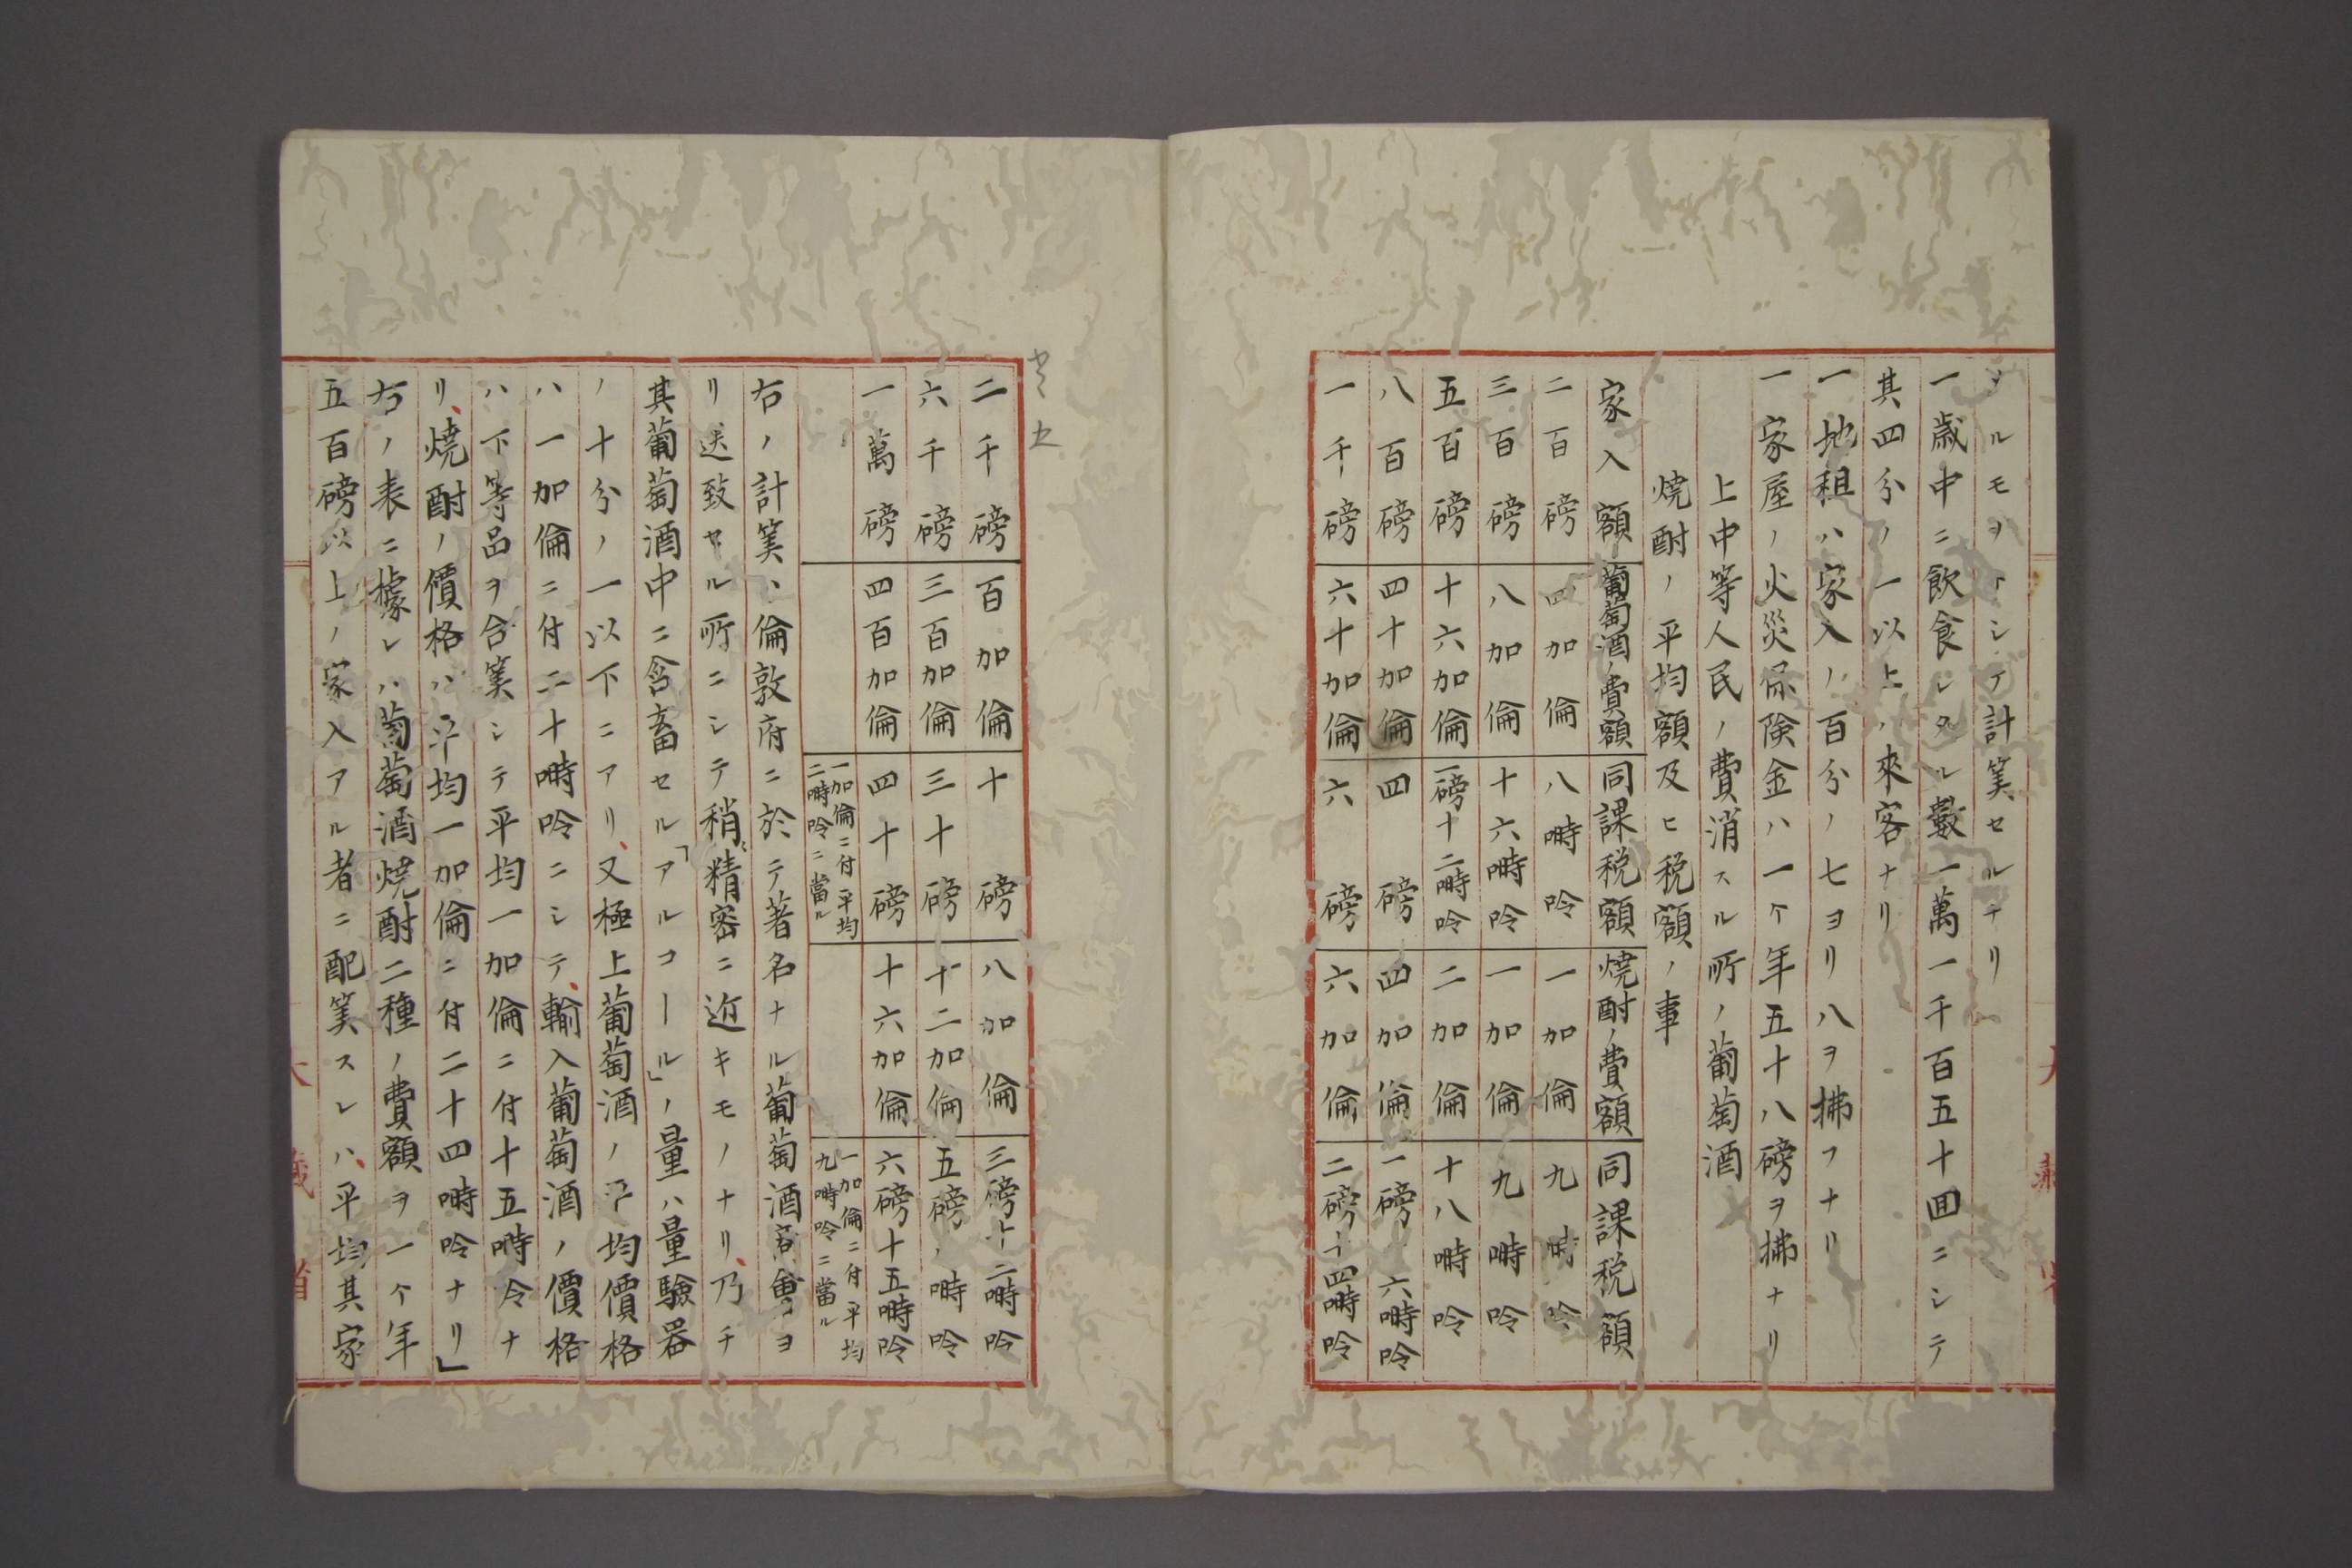 ヲルモヲトシテ計筭セルナリ
一歳中ニ飲食シタル數一萬一千百五十囬ニシテ
其四分ノ一以上ハ來客ナリ
一地租ハ家入ノ百分ノ七ヨリ八ヲ拂フナリ
一家屋ノ火災保険金ハ一ケ年五十八磅ヲ拂ナリ
上中等人民ノ費消スル所ノ葡萄酒
焼酎ノ平均額及ヒ税額ノ事
家入額 葡萄酒ノ費額 同課税額 焼酎ノ費額 同課税額
二百磅 四加倫 八嘶呤 一加倫 九嘶呤
三百磅 八加倫 十六嘶呤 一加倫 九嘶呤
五百磅 十六加倫 一磅十二嘶呤 二加倫 十八嘶呤
八百磅 四十加倫 四磅 四加倫 一磅十六嘶呤
一千磅 六十加倫 六磅 六加倫 二磅十四嘶呤
二千磅 百加倫 十磅 八加倫 三磅十二嘶呤
六千磅 三百加倫 三十磅 十二加倫 五磅八嘶呤
一萬磅 四百加倫 四十磅 十六加倫 六磅十五嘶呤
一加倫ニ付平均二嘶呤ニ當ル 一加倫ニ付平均九嘶呤ニ當ル
右ノ計筭ハ倫敦府ニ於テ著名ナル葡萄酒商會ヨ
リ送致セル所ニシテ稍精密ニ近キモノナリ、乃チ
其葡萄酒中ニ含畜セル「アルコール」ノ量ハ量驗器
ノ十分ノ一以下ニアリ、又極上葡萄酒ノ平均價格
ハ一加倫ニ付二十嘶呤ニシテ、輸入葡萄酒ノ價格
ハ下等品ヲ合筭シテ平均一加倫ニ付十五嘶呤ナ
リ、焼酎ノ價格ハ平均一加倫ニ付二十四嘶呤ナリ」
右ノ表ニ據レハ葡萄酒焼酎二種ノ費額ヲ一ケ年
五百磅以上ノ家入アル者ニ配筭スレハ、平均其家